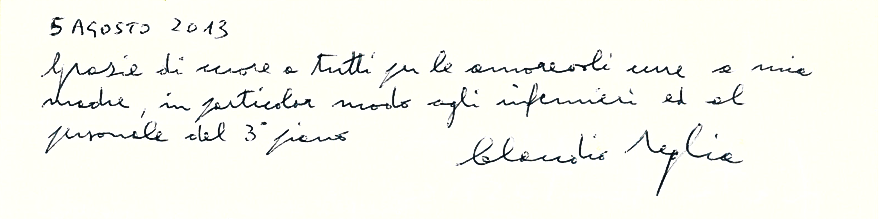 5 AGOSTO 2013
Grazie di cuore a tutti per le amorevoli cure a mia
madre, in particolar modo agli infermieri ed al
personale del 3° piano
Claudio